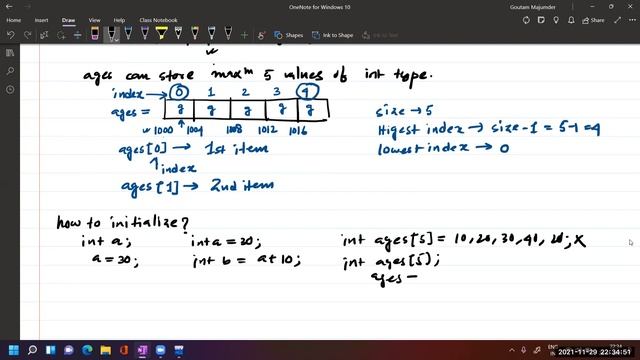 OneNote for Windows 10
Goutam Majumder
Home Insert Draw View Help Class Notebook
Shapes Ink to Shape Ink to Text
ages can store maxm 5 values of int type.
index→ 0 1 2 3 4
ages = g g g g g
1000 1004 1008 1012 1016
size → 5
Higest index → size-1 = 5-1 = 4
lowest index → 0
ages[0] → 1st item
↑ index
ages[1] → 2nd item
how to initialize?
int a; int a = 30; int ages[5] = 10, 20, 30, 40, 20; x
a = 30; int b = a+10; int ages[5];
ages -
ENG
22:34
2021-11-29 22:34:51